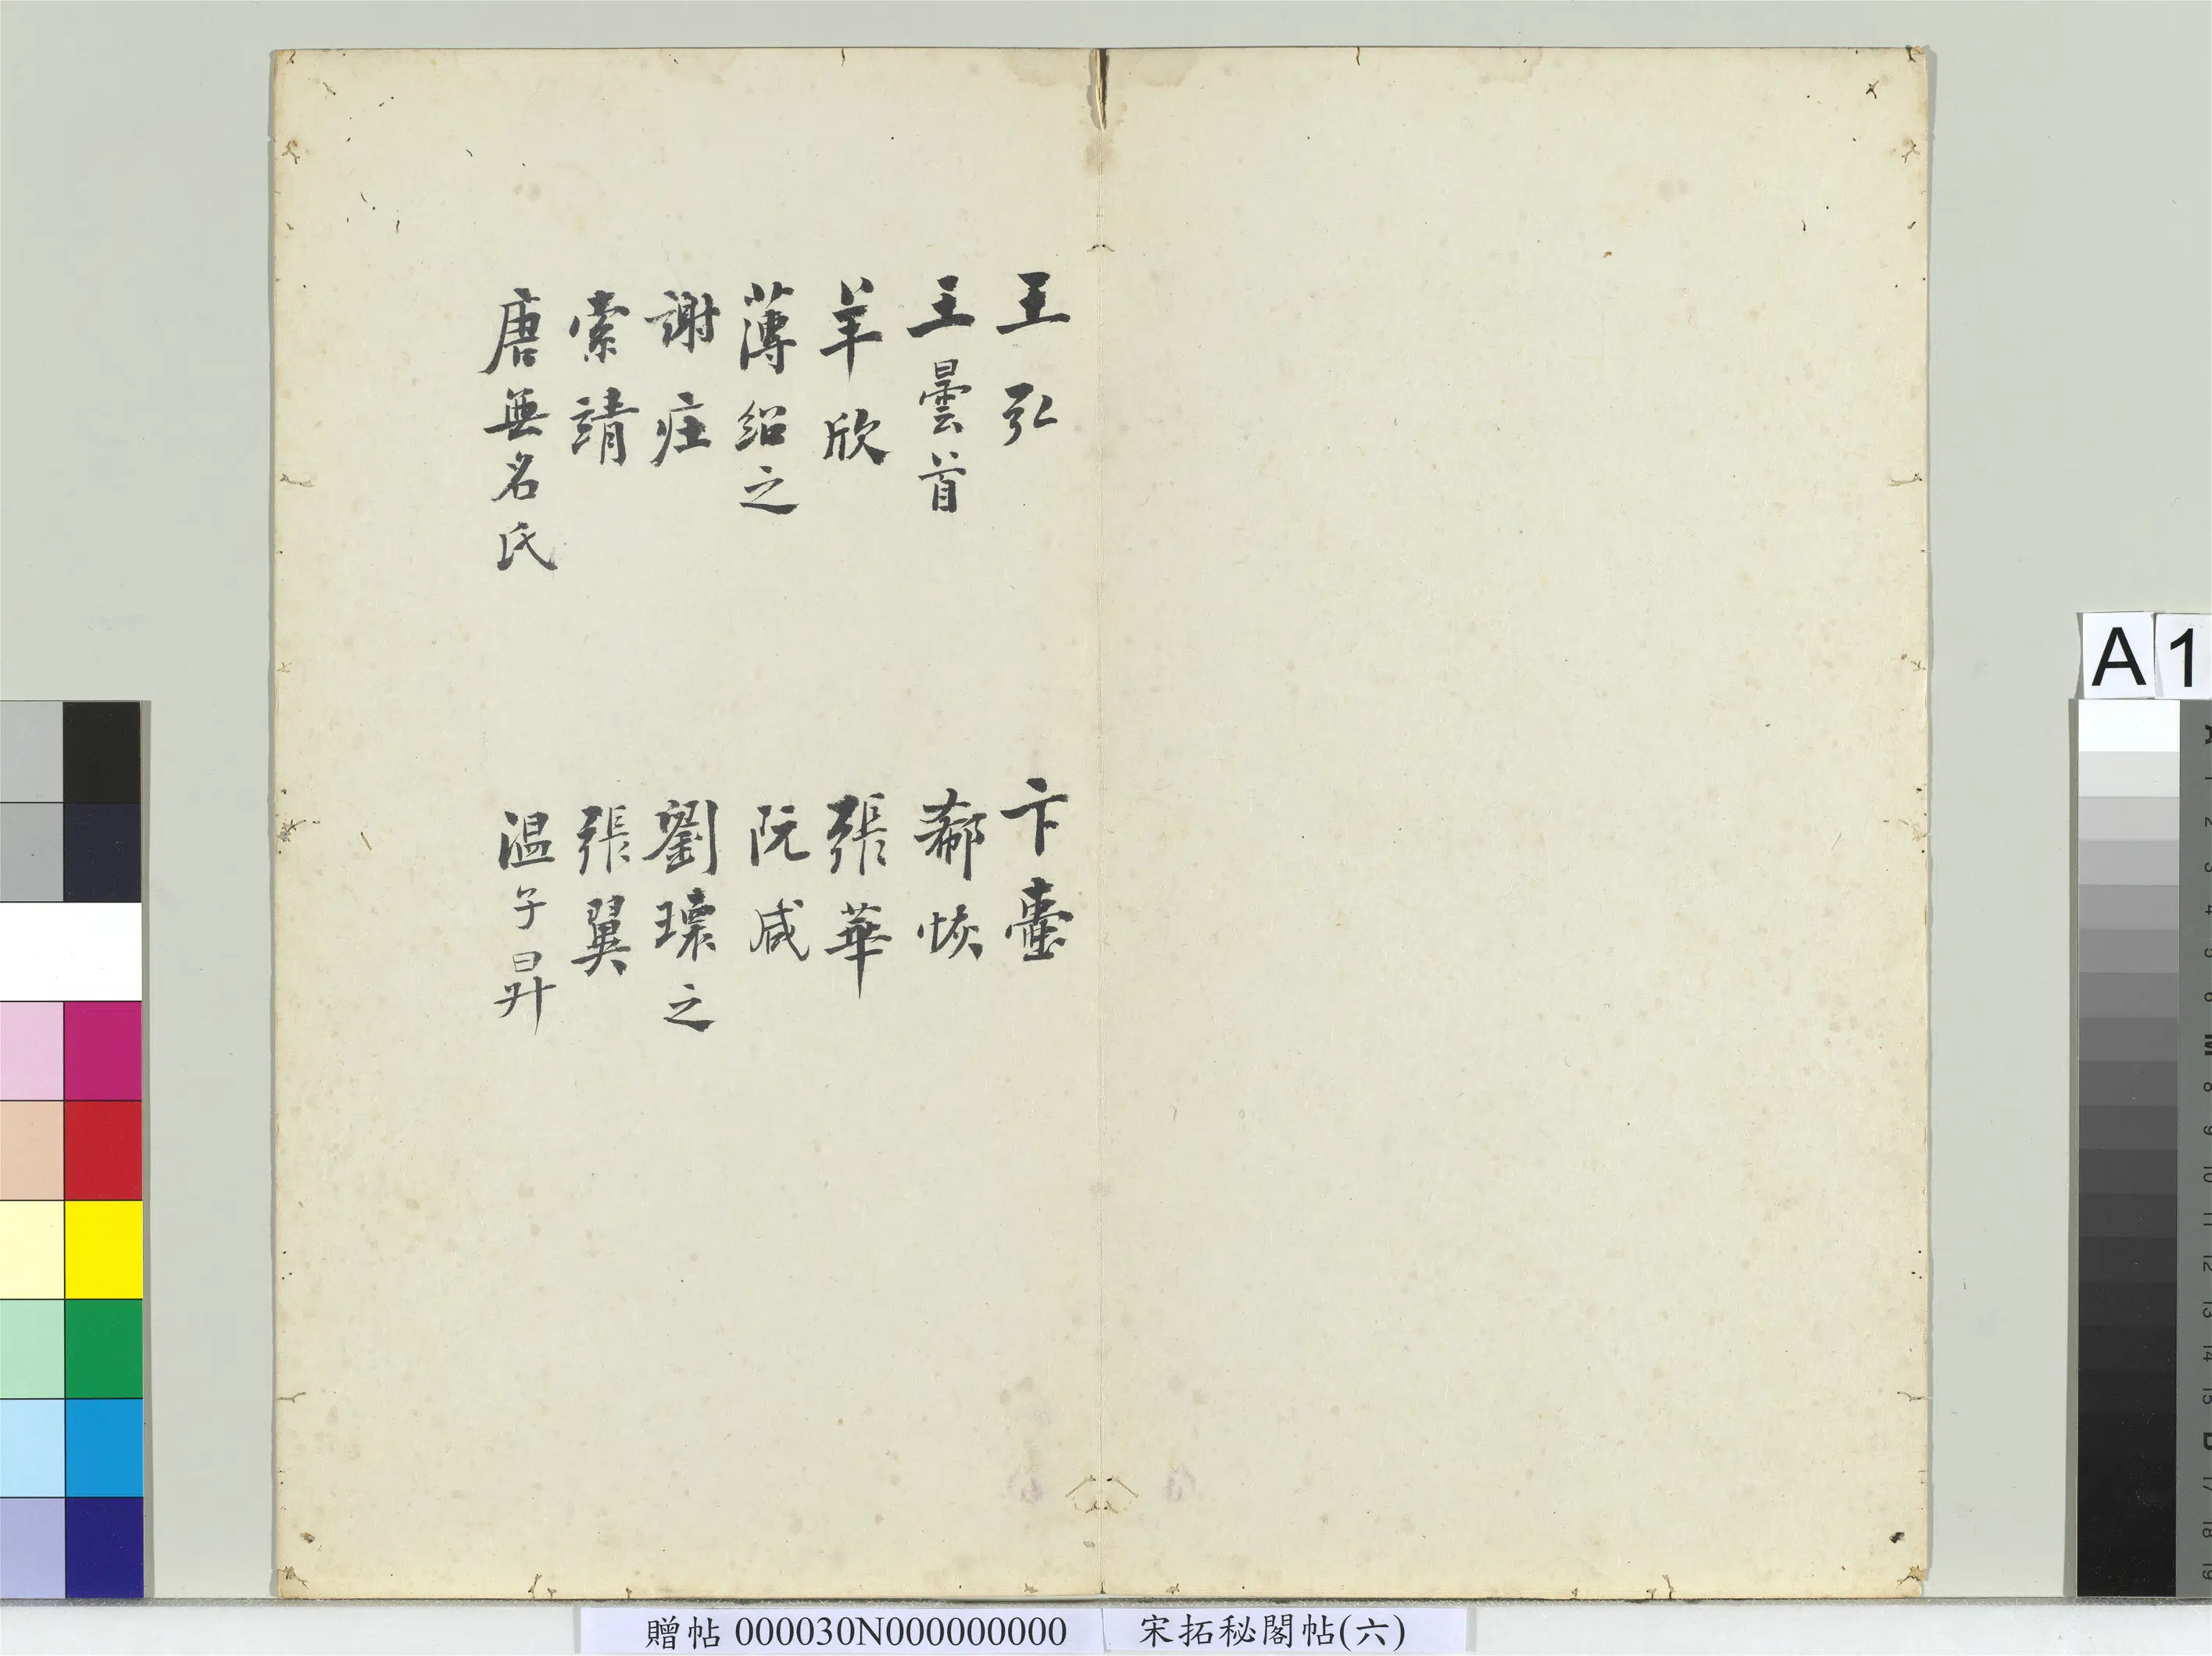 王弘
王曇首
羊欣
薄紹之
謝庄
索靖
唐無名氏
卞壼
郗恢
張華
阮咸
劉瓌之
張翼
温子昇
A 1
贈帖 000030N000000000
宋拓秘閣帖(六)